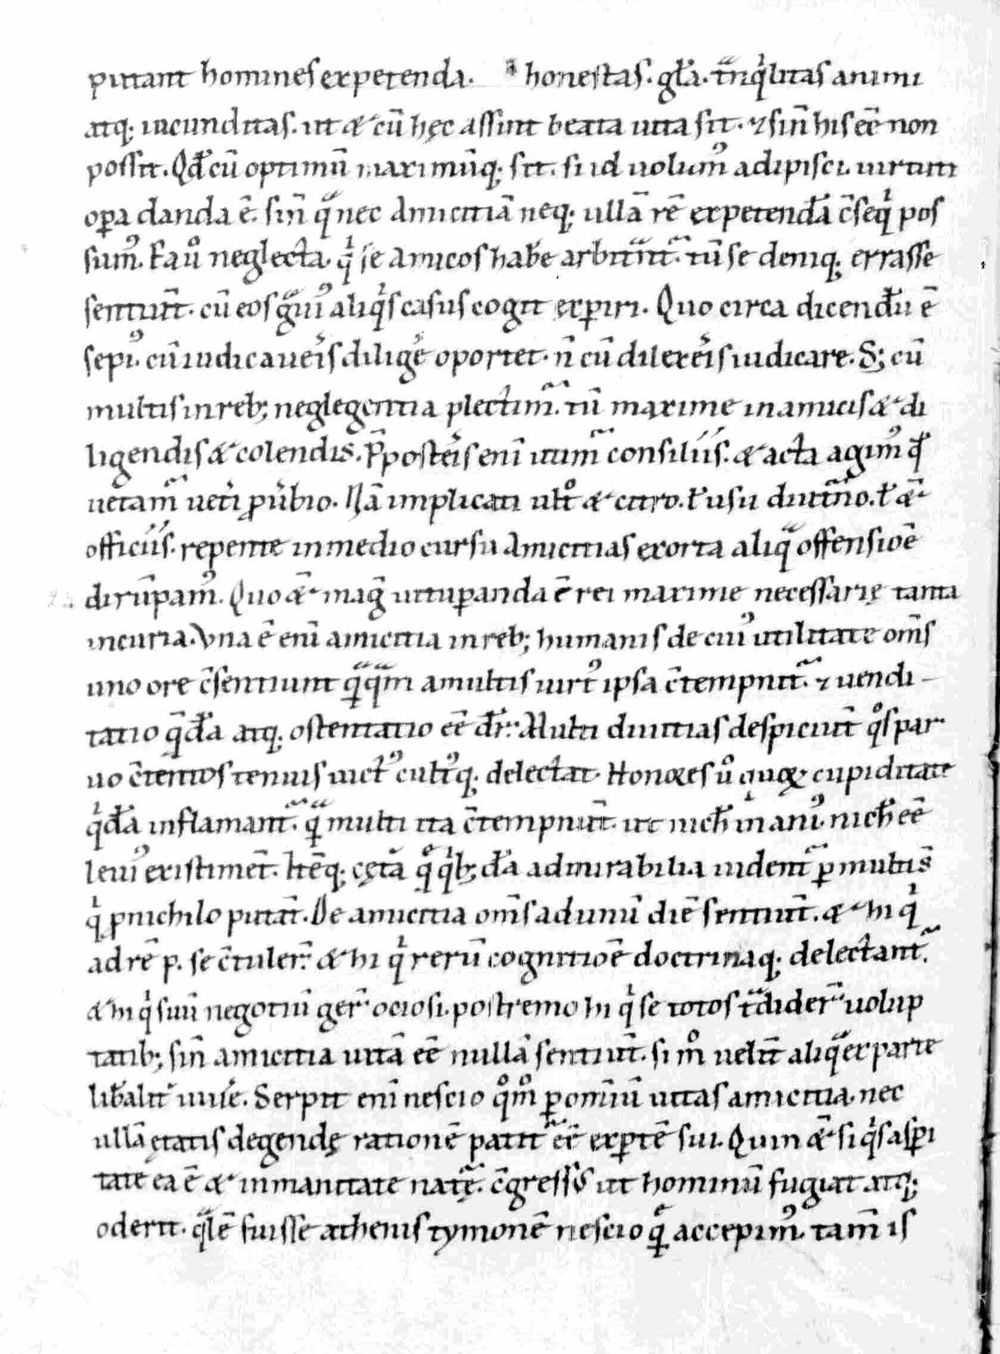 putant homines expetenda. honestas. gła. tᷓnqͥlitas animi
atq; iucunditas. ut & cū hęc assint beata uita sit. ⁊ sin̄ his eē non
possit. Qđ cū optimū maximūq; sit. si id uolum᾽ adipisci. uirtuti
oꝑa danda ē. sin̄ qᷓ nec amicitiā neq; ullā rē expetendā c̄seqͥ pos
sum᾽. Ea uͦ neglecta. qͥ se amicos habe᷒ arbitᷓnt᷑. tū se deniq; errasse
sentiunt̄. cū eos gᷓui᾽ aliqͥs casus cogit exꝑiri. Quo circa dicendū ē
sepi᾽. cū iudicaueͥs dilige᷒ oportet. n̄ cū dilexeͥs iudicare. S; cū
multis in reb; neglegentia plectim᷑. tū maxime in amicis & di
ligendis & colendis. P̄posteͥs enī utim᷑ consiliis. & acta agim᾽ qđ
uetam᷑ uetͥi ꝓuerbio. Nā implicati ultͦ & citro. ł usu diutᷓno. ł &̄
officiis. repente in medio cursu amicitias exorta aliqᷓ offensiōe
dirūpam᾽. Quo &̄ maḡ uituꝑanda ē rei maxime necessarię tanta
incuria. Vna ē enī amicitia in reb; humanis de cui᾽ utilitate om̄s
uno ore c̄sentiunt qᷓqᷓm a multis uirt᾽ ipsa c̄tempnit᷑. ⁊ uendi
tatio qᷓđa atq; ostentatio eē dr̄. Multi diuitias despiciunt̄ qͦs par
uo c̄tentos tenuis uict᾽ cult᾽q; delectat. Honores uͦ quoꝝ cupiditate
qͥđa inflamant᷑. qᷓ multi ita c̄tempnunt̄. ut nich̄ inani᾽ nich̄ eē
leui᾽ existiment̄. Itēq; cęta qͤ qͥb;đa admirabilia uident᷑ ꝑmultis̄
qͥ ꝓ nichilo putant̄. De amicitia om̄s ad unū diē sentiunt̄. & hi qͥ
ad rē p. se c̄tuler̄. & hi qͥ rerū cognitiōe doctrinaq; delectant᷑.
& hi qͥ suū negotiū ger̄ ociosi. postremo hi qͥ se totos tᷓdider̄ uolup
tatib; sin̄ amicitia uitā eē nullā sentiunt̄. si mͦ uelint̄ aliqᷓ ex parte
lib̄alit᷑ uiue᷒. Serpit enī nescio qͦmͦ ꝑ omniū uitas amicitia. nec
ullā ętatis degendę rationē patit᷑ eē exꝑtē sui. Quin &̄ si qͥs asꝑi
tate ea ē & inmanitate natᷓę. c̄gressus ut hominū fugiat atq;
oderit. qᷓlē fuisse athenis tymonē nescio qᷓ accepim᾽. tam̄ is